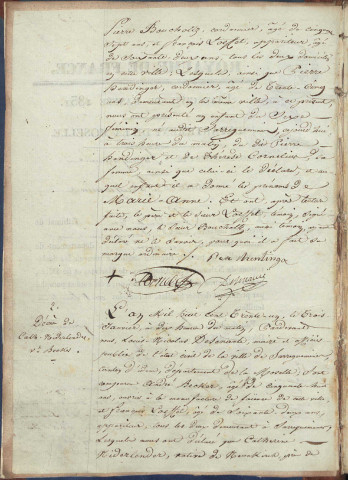 Pierre Boucholtz, cordonnier, âgé de cinquante
Sept ans, et François Loeffel, appariteur, âgé
de Soixante deux ans, tous les deux domiciliés
en cette ville; Lesquels, ainsi que Pierre
Hendinger, cordonnier, âgé de Trente Cinq
ans, domicilié en la même ville, à ce présent,
nous ont présenté un enfant du Sexe
féminin, né audit Sarreguemines,
à trois heures du matin, de dit Pierre
Hendinger, et de Thérèse Cornelius, Sa
femme, ainsi que celui-ci le Déclare, et au
quel enfant il a donné les prénoms de
Marie-Anne. Et ont, après lecture
faite, le père et le Sieur Loeffel, témoin, Signé
avec nous, le Sieur Boucholtz, autre témoin, ayant
Déclaré ne le Savoir, pour quoi il a fait sa
marque ordinaire.
+
2.
Décès de
Cath. Niderlander,
Ve. Becker
L'an Mil huit cent Trente-un, le Trois
Janvier, à dix heures du matin, Pardevant
nous, Louis-Nicolas, maire et officier
public de l'état civil de la ville de Sarreguemines,
canton de dito, Département de la Moselle, Sont
comparus André Becker, âgé de cinquante
ans, à la manufacture de fayence de cette ville,
et François Loeffel, âgé de Soixante deux ans,
appariteur, tous les deux domiciliés à Sarreguemines,
Lesquels nous ont déclaré que Catherine
Niderlander, native de